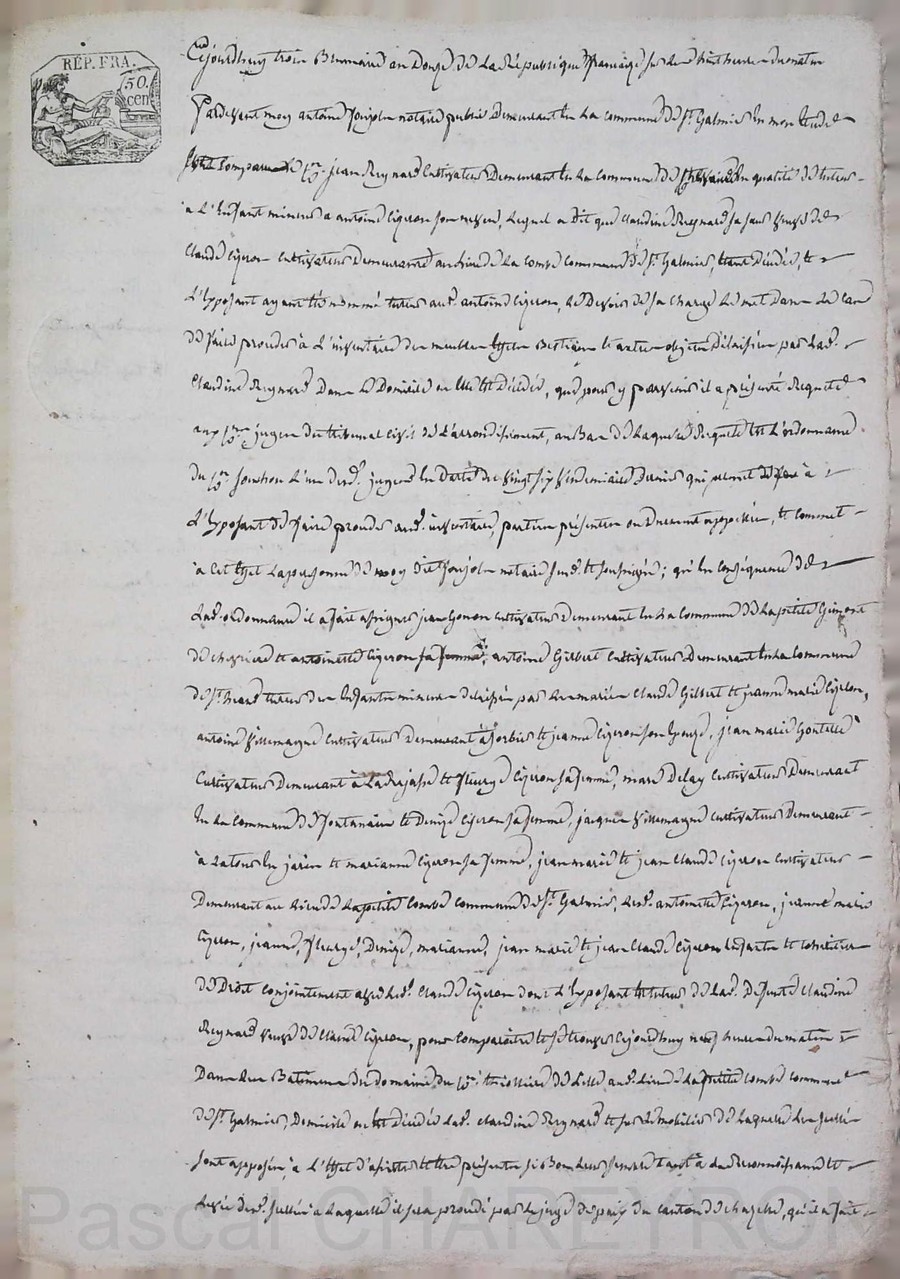 RÉP. FRA.
50. cen.
Cejourdhuy trois Brumaire an Douze de La République française sur les huit heures du matin
Pardevant moy antoine notaire public Demeurant en La commune de St. Galmier En mon Etude
Est Comparu le jean Reynard Cultivateur Demeurant En La Commune de en qualité de tuteur
à L'Enfant mineur a antoine Cizeron son neveu, Lequel a Dit que claudine Reynard sa sœur veuve de
Claude Cizeron Cultivateur Demeurante au lieu de La Combe Commune de St. Galmier, étant Décédée, et
L'Exposant ayant été nommé tuteur aud. antoine Cizeron, Le Devoir de sa charge Le met Dans Le cas
de faire procéder à L'inventaire des meubles Effets Bestiaux et autres objets Délaissés par Lad.
Claudine Reynard Dans Le Domicile ou Elle Est Décédée, que pour y parvenir il a présenté Requete
aux juges du tribunal Civil de L'arrondissement, au Bas de Laquelle Requete Est L'ordonnance
du L'un desd. juges En Datte du vingt six vendemiaire Dernier qui permet à
L'Exposant de faire procéder aud. inventaire, parties présentes ou Duement appellées, et commet
à Cet Effet La personne de moy Dit notaire susd. et soussigné; qu'En Conséquence de
Lad. ordonnance il a fait assigner jean Gonon Cultivateur Demeurant En La Commune de La petite Gimont
de chevrieres et antoinette Cizeron sa femme, antoine Gilbert Cultivateur Demeurant En La Commune
de St. tuteur des Enfants mineurs delaissés par Les mariés Claude Gilbert et jeanne marie Cizeron,
antoine Villemagne Cultivateur Demeurant à Sorbier et jeanne Cizeron son Epouse, jean marie
Cultivateur Demeurant à Larajasse et fleurye Cizeron sa femme, marc Delay Cultivateur Demeurant
En La Commune de fontanès et Denize Cizeron sa femme, jacques Villemagne Cultivateur Demeurant
à Latour En jarez et marianne Cizeron sa femme, jean marie et jean Claude Cizeron Cultivateurs
Demeurant au Lieu de La petite Combe commune de St. Galmier, Lesd. antoinette Cizeron, jeanne marie
Cizeron, jeanne, fleurye, Denize, marianne, jean marie et jean Claude Cizeron Enfants et héritiers
de Droit conjointement avec Led. Cizeron dont L'Exposant Est tuteur de Lad. Defunte Claudine
Reynard veuve de Claude Cizeron, pour Comparoitre et se trouver Cejourdhuy neuf heures du matin
Dans Les Batiments du domaine du de Lesse aud. Lieu de La petite Combe commune
de St. Galmier, Domicile ou Est Décédée Lad. claudine Reynard et sur Le mobilier de Laquelle Les scellés
sont apposés à L'Effet d'assister et Etre présents si Bon Leur semble tant à La Reconnoissance et
Levée desd. scellés à Laquelle il sera procédé par Le juge de paix du canton de chazelle, qu'il a fait
Pascal CHAREYRON